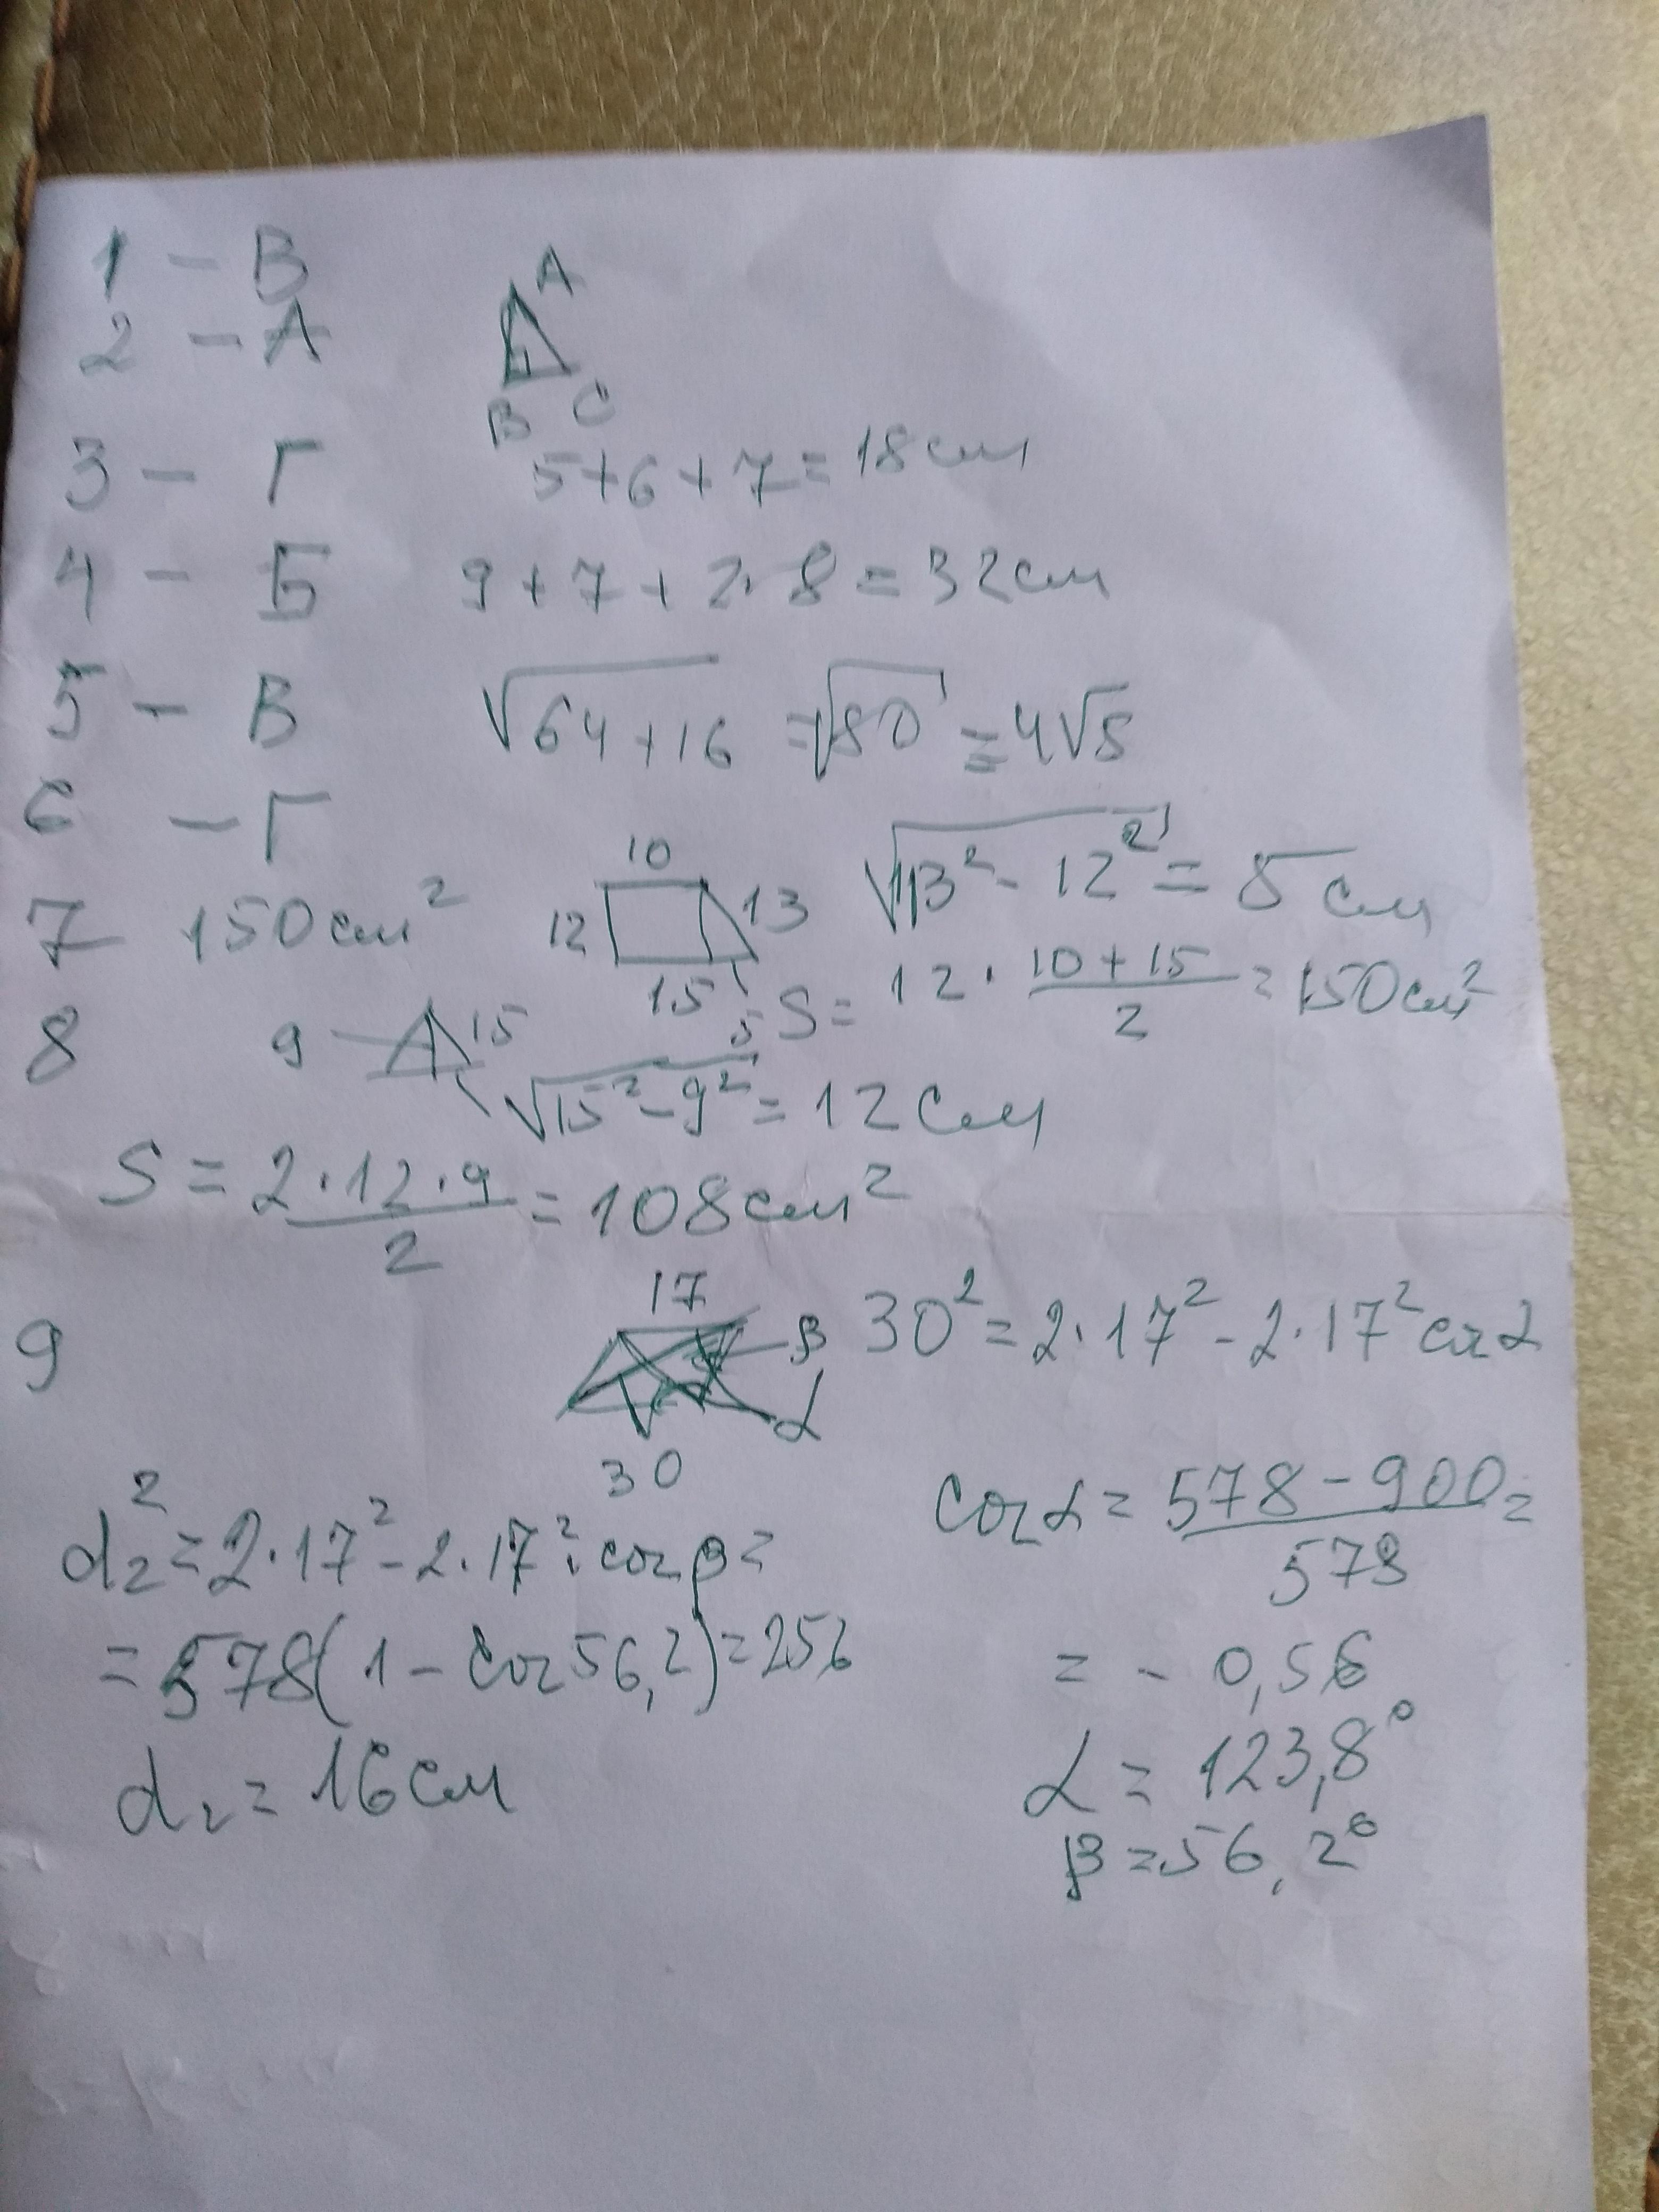 1 - В
2 - А
А
В С
3 - Г 5+6+7=18см
4 - Б 9+7+2·8=32см
5 - В √64+16 =√80 = 4√5
6 - Г
7 150см² 10 12 13 15 5 √13²-12² = 5см
S= 12·(10+15)/2=150см²
8 9 15 √15²-9² = 12см
S = 2·12·9/2 = 108см²
9 17 β α 30 30²=2·17²-2·17²cosα
cosα = 578-900/578 =
= -0,56
α = 123,8°
β=56,2°
d₂²=2·17²-2·17²·cosβ=
=578(1-cos56,2)=256
d₂=16см